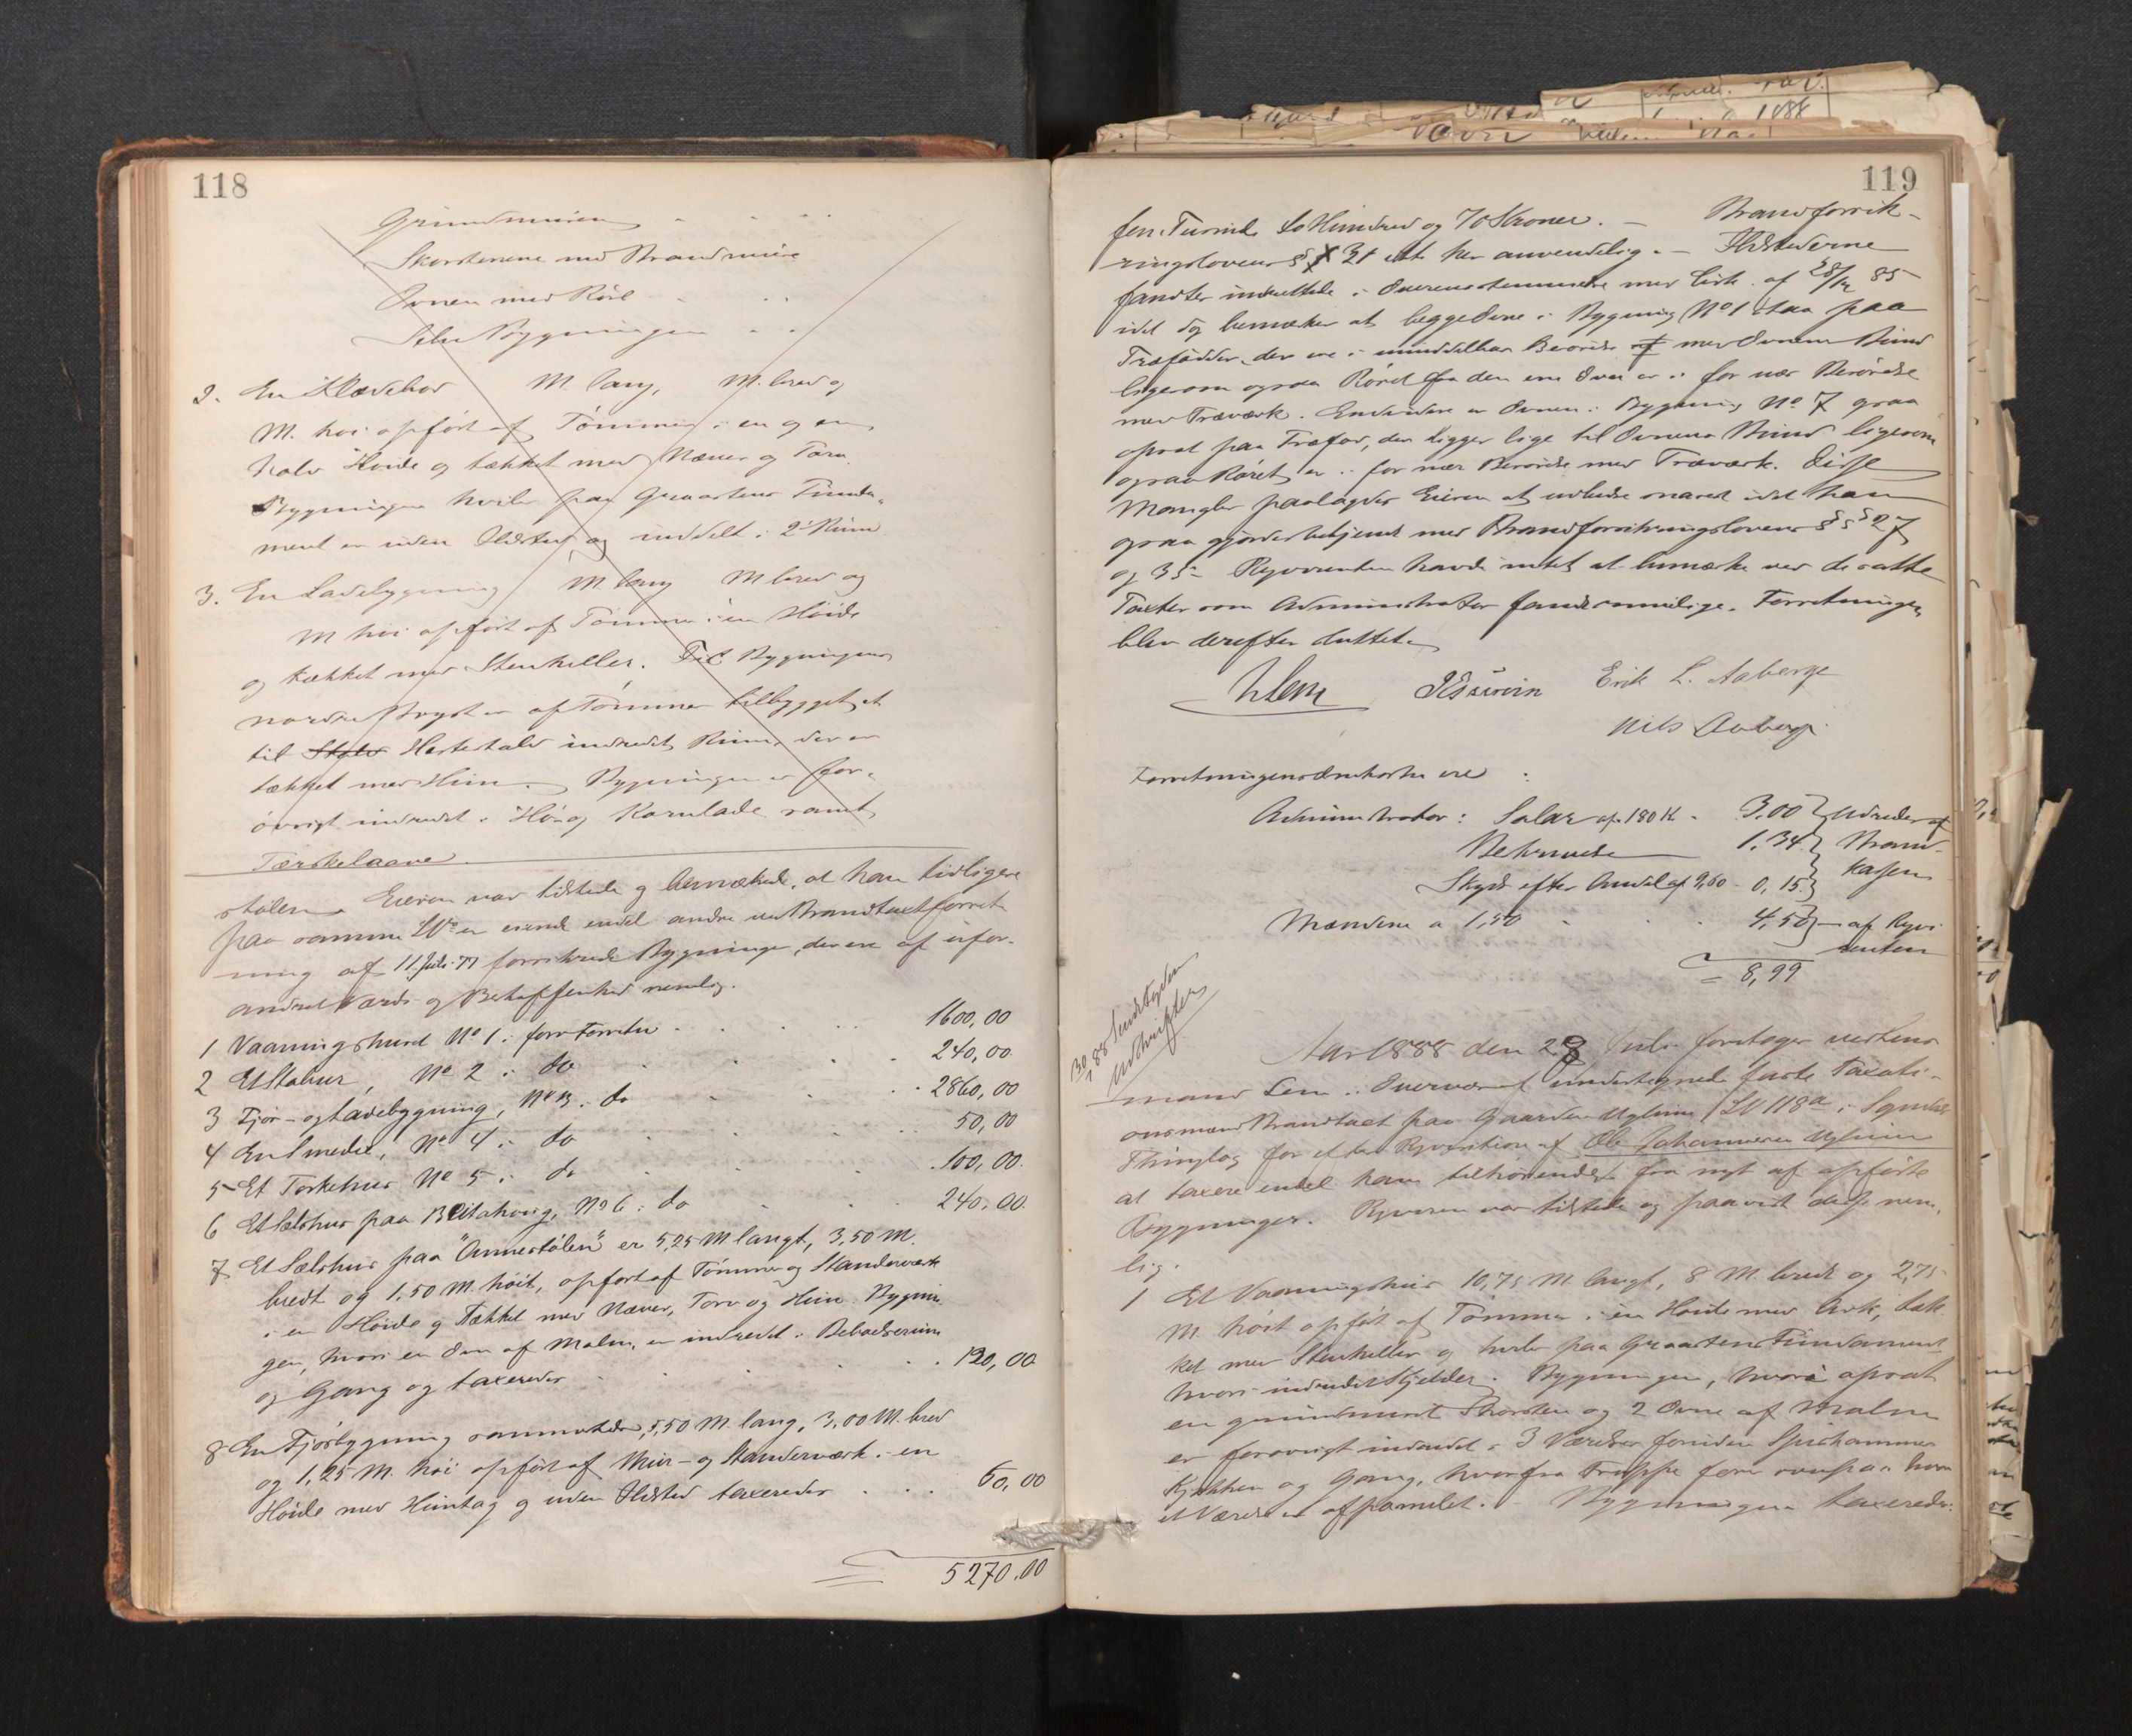 118
Grundmuren
Skorstenene med Brandmure
Ovnen med Rör
Selve Bygningen
2. En Kladebod M. lang, M. bred og
M. høi opført af Tömmer i en og en
halv Höide og tækket med Næver og Torv.
Bygningen hviler paa Graastens Funda-
ment er uden Ildsted og inddelt i 2 Rum
3. En Ladebygning M. lang M bred og
M høi opført af Tömmer i en Höide
og tækket med Stenheller. Til Bygningens
nordre er af Tömmer tilbygget et
til Stald Hestestald indredet Rum, der er
tækket med Him. Bygningen er for-
övrigt indredet i Hö- og Kornlade samt
Tærskelaave.
stölen. Eieren var tilstede og bemærkede, at han tidligere
paa samme LNo er eiende endel andre ved Brandtaxtforret-
ning af 11 Juli 77 forsikrede Bygninger, der ere af ufor-
andret Værdi og Beskaffenhed nemlig.
1 Vaaningshuset No 1 i forr. Forretn. 1600,00
2 Et Stabur, No 2 i do 240,00
3 Fjös- og Ladebygning, No 3 i do 2860,00
4 En Smedie, No 4 i do 50,00
5 Et Törkehus No 5 i do 100,00
6 Et Selshus paa Beitahovig, No 6 i do 240,00
7 Et Selshus paa "Annestölen" er 5,25 M langt, 3,50 M.
bredt og 1,50 M. höit, opført af Tömmer og Standerværk
i en Höide og Tækket med Næver, Torv og Him. Bygnin-
gen, hvori en Ovn af Malm, er indredet i Beboelsesrum
og Gang og taxeredes 120,00
8 En Fjösbygning sammesteds, 5,50 M. lang, 3,00 M. bred
og 1,25 M. höi opført af Mur- og Standerværk i en
Höide med Himtag og uden Ildsted taxeredes 60,00
5270,00
119
fem Tusinde to Hundred og 70 Kroner. – Brandforsik-
ringslovens § 31 ikke her anvendelig. – Ildstederne
fandtes indrettede i Overensstemmelse med Cirk. af 28/12 85
idet dog bemærkes at begge Ovne i Bygning No 1 staa paa
Træfödder, der ere i umiddelbar Berörelse af med Ovnenes Bund
ligesom ogsaa Röret fra den ene Ovn er i for nær Berörelse
med Træværk. Endvidere er Ovnen i Bygning No 7 ogsaa
opsat paa Træfod, der ligger lige til Ovnens Bund ligesom
ogsaa Röret er i for nær Berörelse med Træværk. Disse
Mangler paalagdes Eieren at udbedre snarest idet han
ogsaa gjordes bekjendt med Brandforsikringslovens §§ 27
og 35. Rekvirenten havde intet at bemærke ved de satte
Taxter som Administrator fandt rimelige. Forretningen
blev derefter sluttet.
Lem Erik L. Aaberge
Nils Aaberge
Forretningens Omkostn. ere :
Administrator: Salær af 180 Kr. 3,00 } Udredes af
Beskrivelse 1,34 } Brand-
Skyds efter Andel af 9,60 0,15 } kassen
Mændene a 1,50 4,50 } af Rekvi-
renten
= 8,99
30/7 88 Udskriften
Aar 1888 den 28 Juli foretoges ved Lens-
mand Lem i Overvær af undertegnede faste Taxati-
onsmænd Brandtaxt paa Gaarden Uglum LN 118a i Syndals
Thinglag for efter Rekvisition af Ole Johannesen Uglum
at taxere endel ham tilhörende fra nyt af opförte
Bygninger. Rekvirenten var tilstede og paaviste disse nem-
lig.
1 Et Vaaningshus 10,75 M. langt, 8 M. bredt og 2,75
M. höit opført af Tömmer i en Höide med Ark, tæk-
ket med Stenheller og hviler paa Graastens Fundament
hvori indredet Kjelder. Bygningen, hvori opsat
en grundmuret Skorsten og 2 Ovne af Malm
er forövrigt indredet i 3 Værelser foruden Spiskammer
Kjökken og Gang, hvorfra Trappe fører ovenpaa hvor
et Værelse er afpanelet. – Bygningen taxeredes: